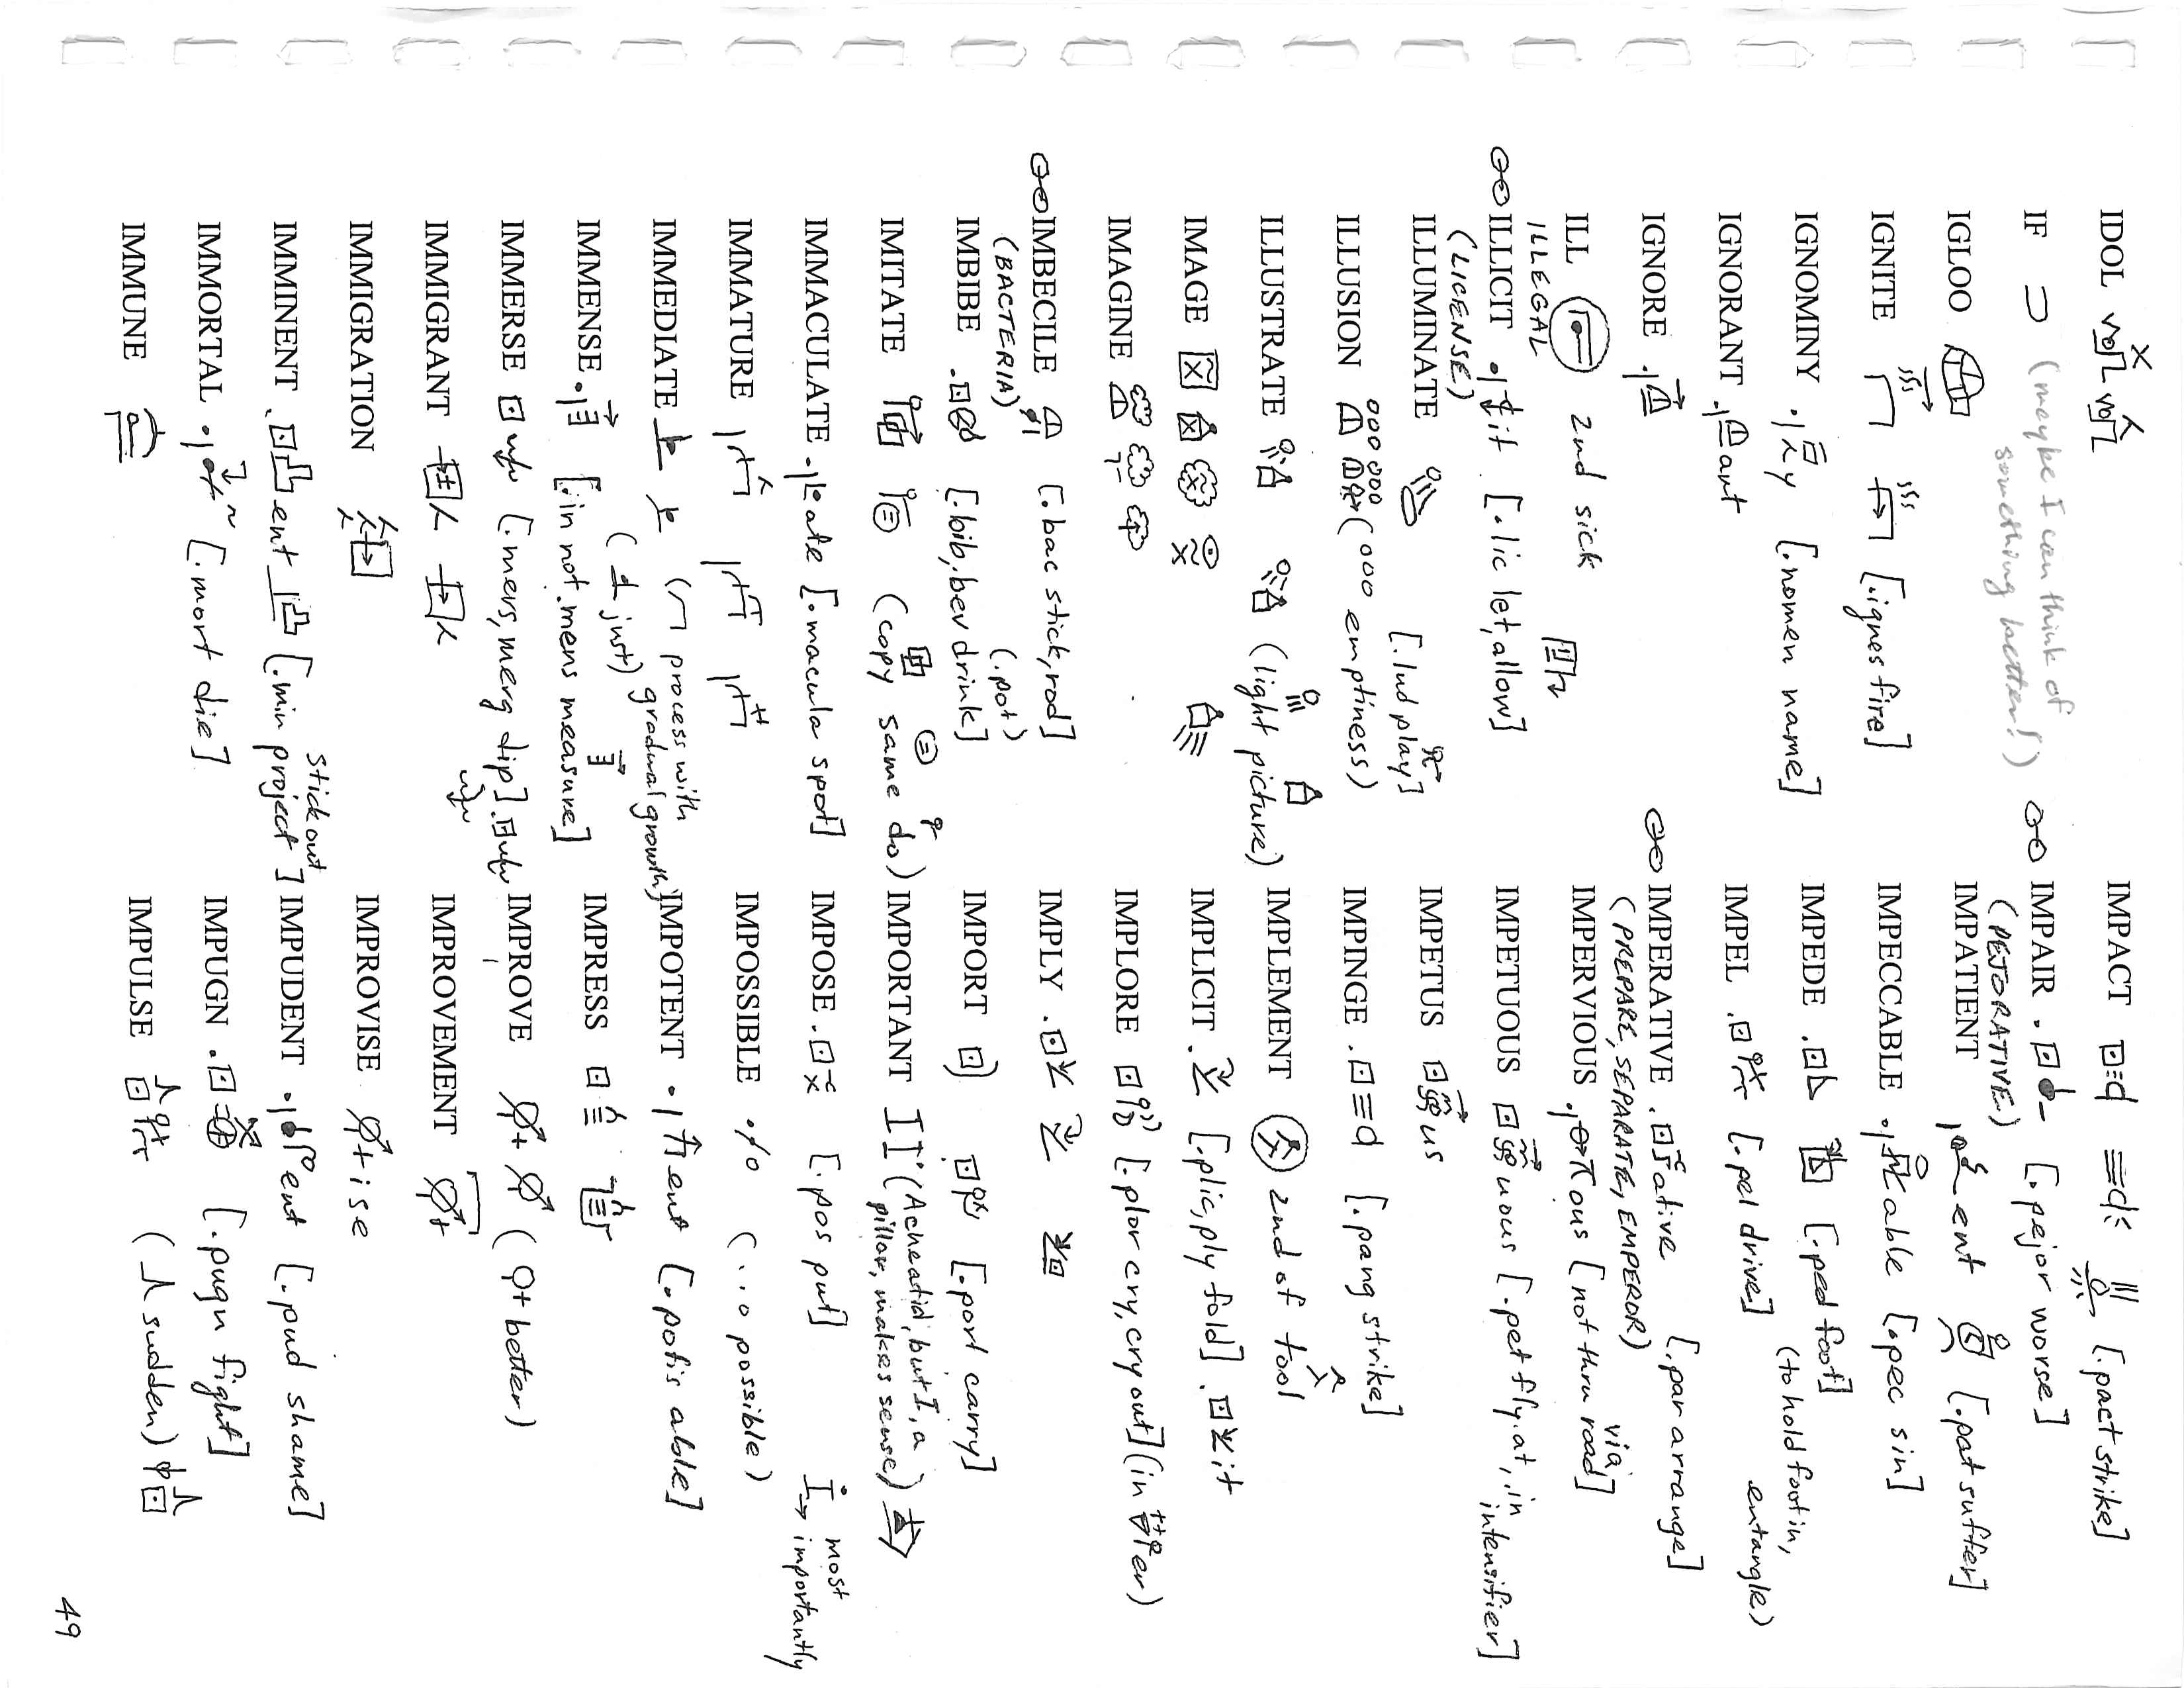 IDOL
IF (maybe I can think of
something better!)
IGLOO
IGNITE [.ignes fire]
IGNOMINY y [.nomen name]
IGNORANT ant
IGNORE
ILL 2nd sick
ILLEGAL
ILLICIT it [.lic let, allow]
(LICENSE)
ILLUMINATE [.lud play]
ILLUSION (000 emptiness)
ILLUSTRATE (light picture)
IMAGE
IMAGINE
IMBECILE [.bac stick, rod]
(BACTERIA) (.pot)
IMBIBE [.bib, .bev drink]
IMITATE (copy same do)
IMMACULATE ate [.macula spot]
IMMATURE
IMMEDIATE ( process with
gradual growth)
( just)
IMMENSE [.in not .mens measure]
IMMERSE [.mers, merg dip]
IMMIGRANT
IMMIGRATION
stick out
IMMINENT ent [.min project]
IMMORTAL [.mort die]
IMMUNE
IMPACT [.pact strike]
IMPAIR [.pejor worse]
(PEJORATIVE)
IMPATIENT ent [.pat suffer]
IMPECCABLE able [.pec sin]
IMPEDE [.ped foot]
(to hold foot in,
entangle)
IMPEL [.pel drive]
IMPERATIVE ative [.par arrange]
(PREPARE, SEPARATE, EMPEROR)
via
IMPERVIOUS ous [not thru road]
IMPETUOUS uous [.pet fly.at, in
intensifier]
IMPETUS us
IMPINGE [.pang strike]
IMPLEMENT 2nd of tool
IMPLICIT [.plic, ply fold] it
IMPLORE [.plor cry, cry out] (in er)
IMPLY
IMPORT [.port carry]
IMPORTANT I I (Acheatid, but I, a
pillar, makes sense)
IMPOSE [.pos put] most
importantly
IMPOSSIBLE (...o possible)
IMPOTENT ent [.potis able]
IMPRESS
IMPROVE (+ better)
IMPROVEMENT
IMPROVISE ise
IMPUDENT ent [.pud shame]
IMPUGN [.pugn fight]
IMPULSE ( sudden)
49